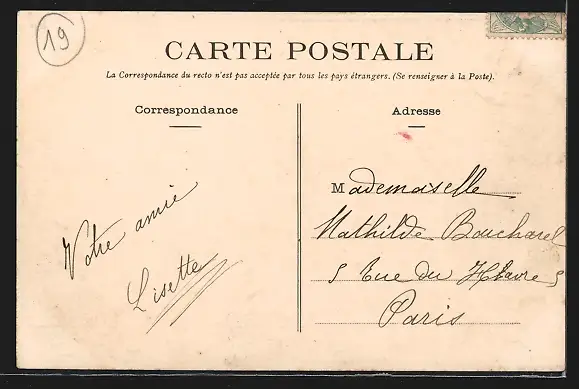 19
CARTE POSTALE
La Correspondance du recto n'est pas acceptée par tous les pays étrangers. (Se renseigner à la Poste).
Correspondance
Adresse
Votre amie
Lisette
Mademoiselle
Mathilde
5 Rue du Hâvre 5
Paris